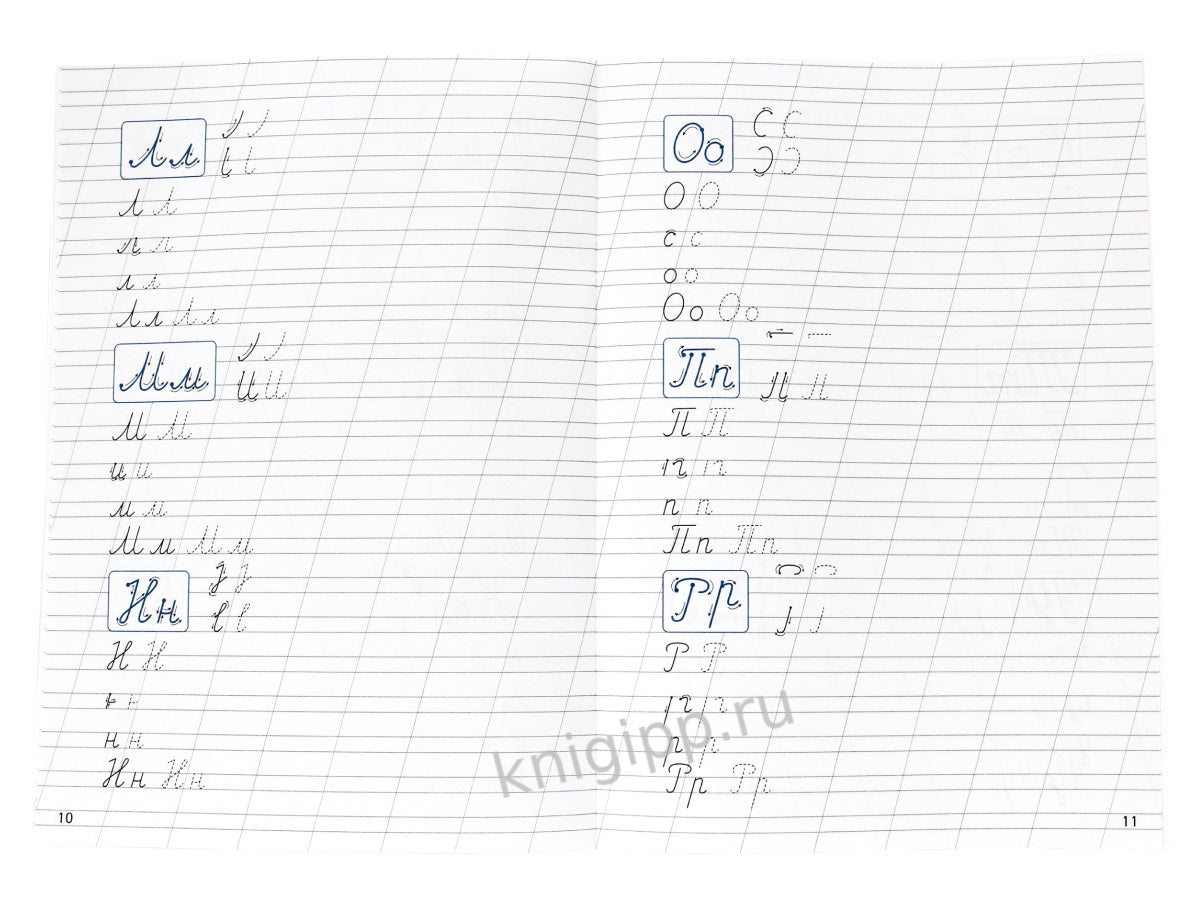 Лл
Л Л
л л
л л
Лл Лл
Мм
М М
и и
м м
Мм Мм
Нн
Н Н
н н
Нн Нн
10
Оо
С С
О О
с с
о о
Оо Оо
Пп
П П
п п
Пп Пп
Рр
Р Р
р р
Рр Рр
11
knigipp.ru